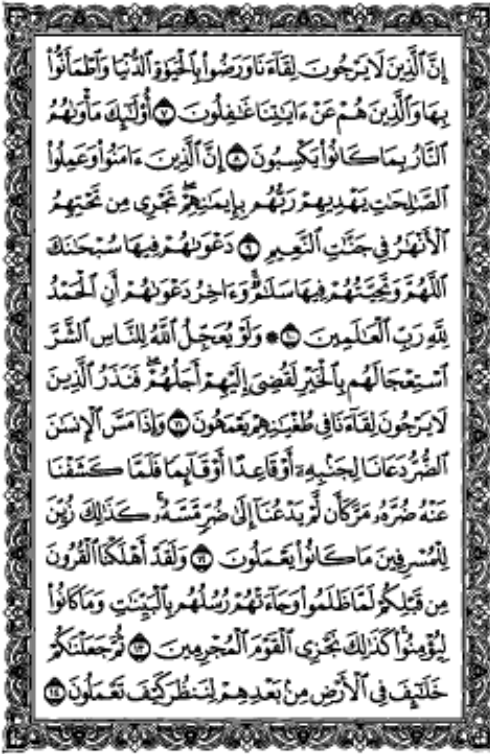 إِنَّ ٱلَّذِينَ لَا يَرْجُونَ لِقَآءَنَا وَرَضُوا۟ بِٱلْحَيَوٰةِ ٱلدُّنْيَا وَٱطْمَأَنُّوا۟
بِهَا وَٱلَّذِينَ هُمْ عَنْ ءَايَـٰتِنَا غَـٰفِلُونَ ۝٧ أُو۟لَـٰٓئِكَ مَأْوَىٰهُمُ
ٱلنَّارُ بِمَا كَانُوا۟ يَكْسِبُونَ ۝٨ إِنَّ ٱلَّذِينَ ءَامَنُوا۟ وَعَمِلُوا۟
ٱلصَّـٰلِحَـٰتِ يَهْدِيهِمْ رَبُّهُم بِإِيمَـٰنِهِمْ ۖ تَجْرِى مِن تَحْتِهِمُ
ٱلْأَنْهَـٰرُ فِى جَنَّـٰتِ ٱلنَّعِيمِ ۝٩ دَعْوَىٰهُمْ فِيهَا سُبْحَـٰنَكَ
ٱللَّهُمَّ وَتَحِيَّتُهُمْ فِيهَا سَلَـٰمٌ ۚ وَءَاخِرُ دَعْوَىٰهُمْ أَنِ ٱلْحَمْدُ
لِلَّهِ رَبِّ ٱلْعَـٰلَمِينَ ۝١٠ ۞ وَلَوْ يُعَجِّلُ ٱللَّهُ لِلنَّاسِ ٱلشَّرَّ
ٱسْتِعْجَالَهُم بِٱلْخَيْرِ لَقُضِىَ إِلَيْهِمْ أَجَلُهُمْ ۖ فَنَذَرُ ٱلَّذِينَ
لَا يَرْجُونَ لِقَآءَنَا فِى طُغْيَـٰنِهِمْ يَعْمَهُونَ ۝١١ وَإِذَا مَسَّ ٱلْإِنسَـٰنَ
ٱلضُّرُّ دَعَانَا لِجَنۢبِهِۦٓ أَوْ قَاعِدًا أَوْ قَآئِمًا فَلَمَّا كَشَفْنَا
عَنْهُ ضُرَّهُۥ مَرَّ كَأَن لَّمْ يَدْعُنَآ إِلَىٰ ضُرٍّ مَّسَّهُۥ ۚ كَذَٰلِكَ زُيِّنَ
لِلْمُسْرِفِينَ مَا كَانُوا۟ يَعْمَلُونَ ۝١٢ وَلَقَدْ أَهْلَكْنَا ٱلْقُرُونَ
مِن قَبْلِكُمْ لَمَّا ظَلَمُوا۟ ۙ وَجَآءَتْهُمْ رُسُلُهُم بِٱلْبَيِّنَـٰتِ وَمَا كَانُوا۟
لِيُؤْمِنُوا۟ ۚ كَذَٰلِكَ نَجْزِى ٱلْقَوْمَ ٱلْمُجْرِمِينَ ۝١٣ ثُمَّ جَعَلْنَـٰكُمْ
خَلَـٰٓئِفَ فِى ٱلْأَرْضِ مِنۢ بَعْدِهِمْ لِنَنظُرَ كَيْفَ تَعْمَلُونَ ۝١٤